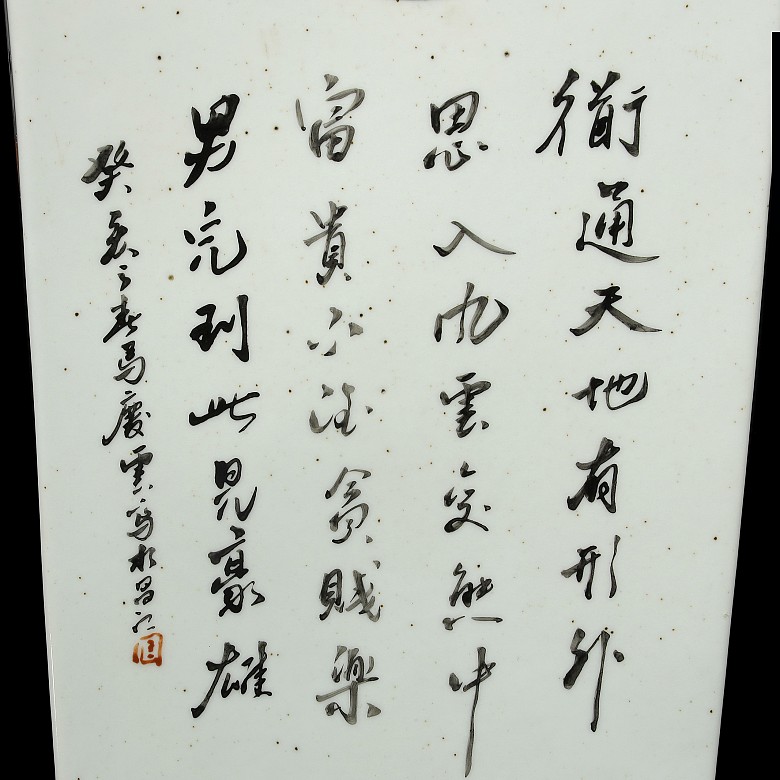 衜通天地有形外
思入風雲変態中
富貴不淫貧賤樂
男兒到此是豪雄
癸亥之春馬慶雲寫於昌江